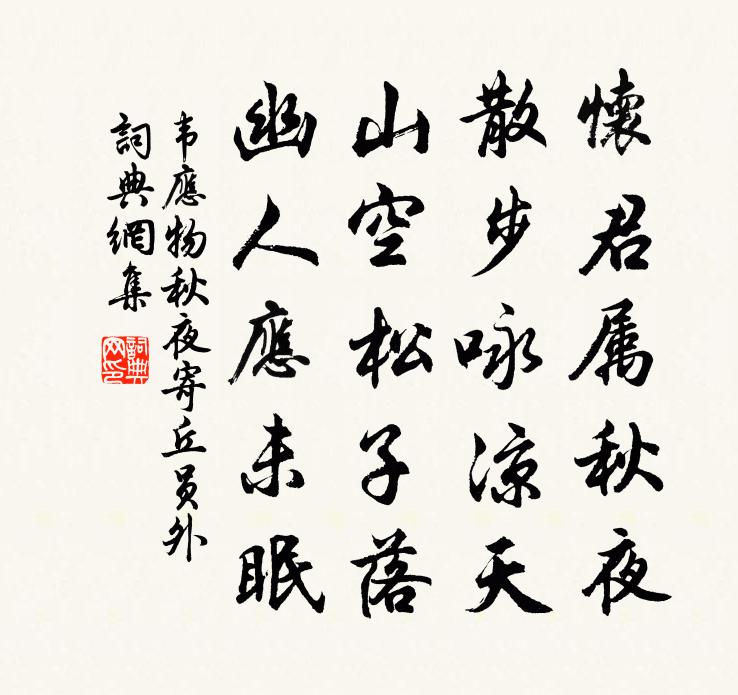 懷君属秋夜
散步咏涼天
山空松子落
幽人應未眠
韦應物秋夜寄丘员外
詞典網集
詞典网印